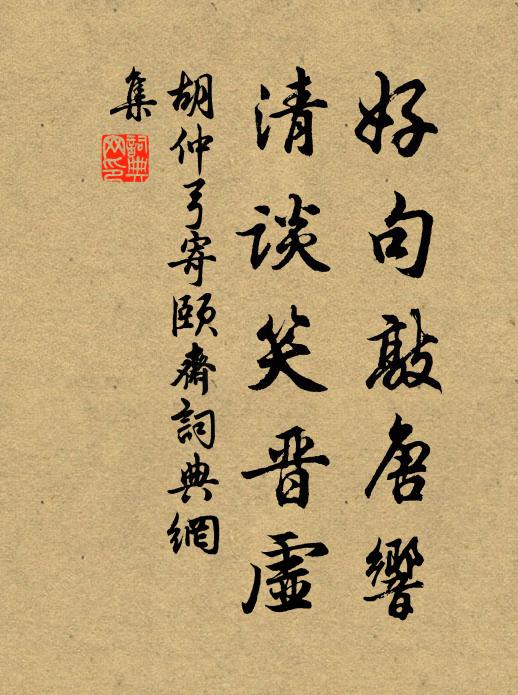 好句敲唐響
清談笑晋虛
胡仲弓寄頤齋詞典網
集
詞典網印